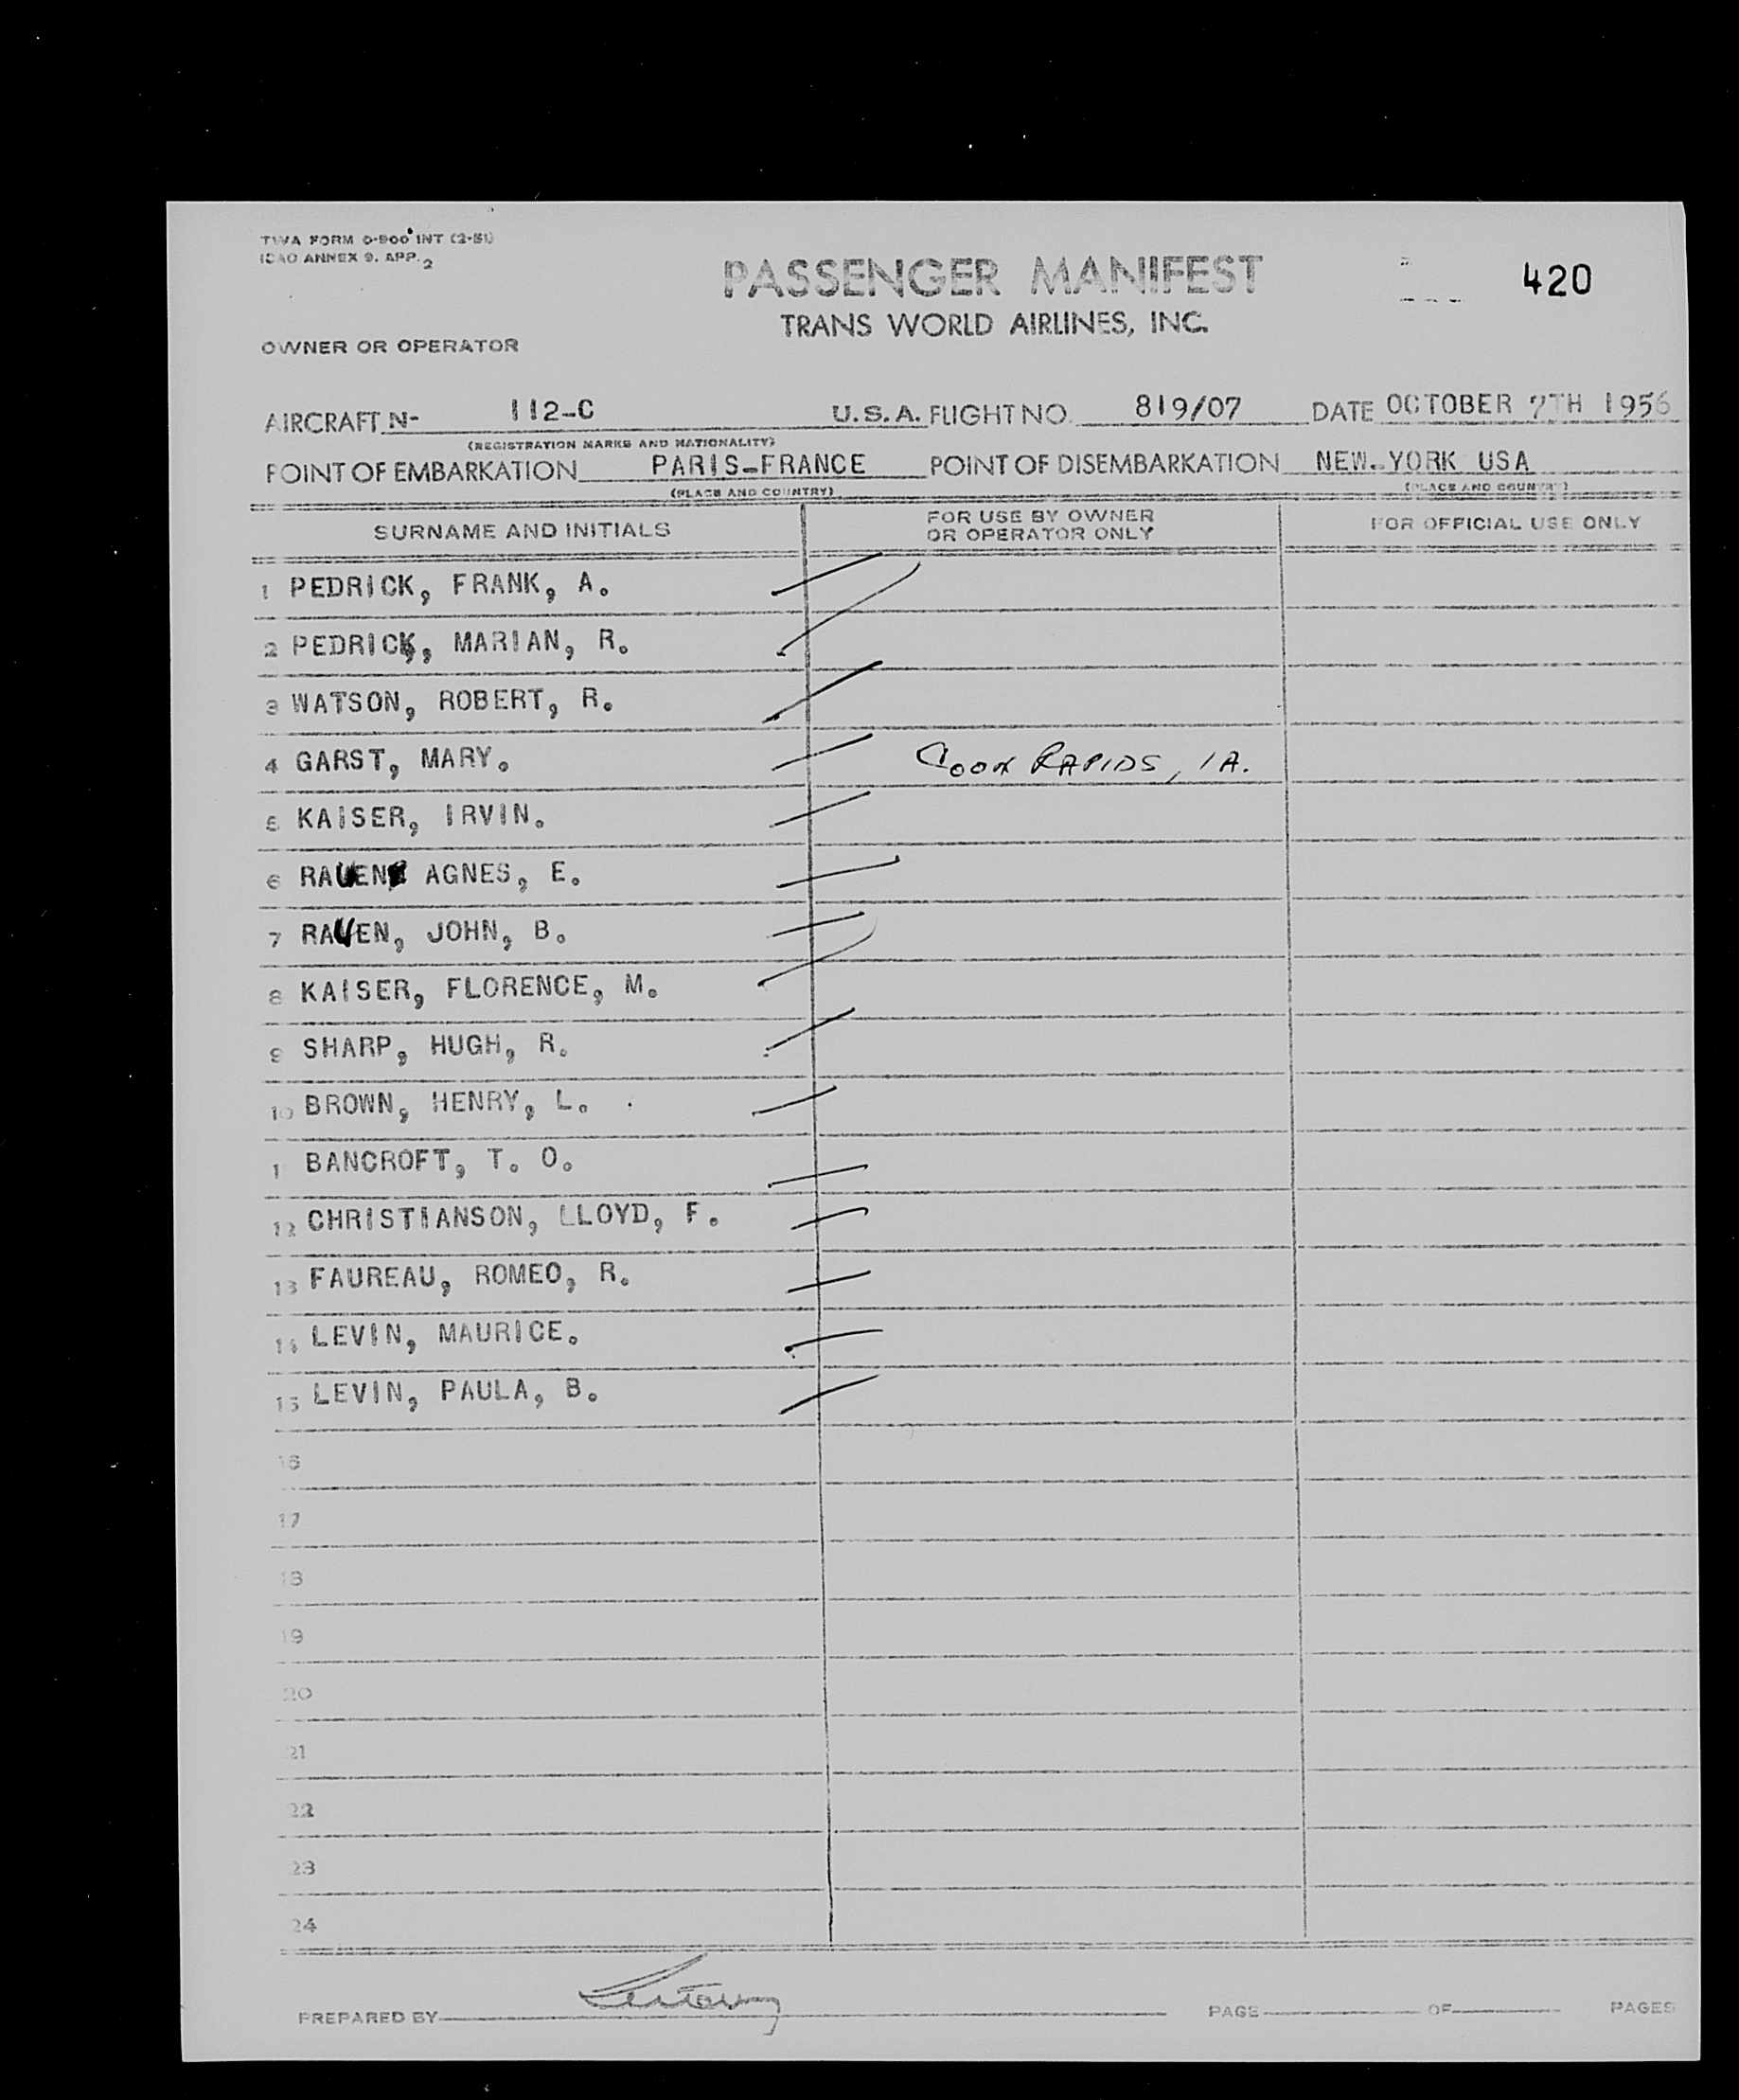 TWA FORM O-900 INT (2-51)
ICAO ANNEX 9. APP. 2
PASSENGER MANIFEST
420
TRANS WORLD AIRLINES, INC.
OWNER OR OPERATOR
AIRCRAFT N- 112-C U.S.A. FLIGHT NO. 819/07 DATE OCTOBER 7TH 1956
(REGISTRATION MARKS AND NATIONALITY)
POINT OF EMBARKATION PARIS-FRANCE POINT OF DISEMBARKATION NEW-YORK USA
(PLACE AND COUNTRY) (PLACE AND COUNTRY)
SURNAME AND INITIALS FOR USE BY OWNER OR OPERATOR ONLY FOR OFFICIAL USE ONLY
1 PEDRICK, FRANK, A.
2 PEDRICK, MARIAN, R.
3 WATSON, ROBERT, R.
4 GARST, MARY. COON RAPIDS, IA.
5 KAISER, IRVIN.
6 RAUEN AGNES, E.
7 RAUEN, JOHN, B.
8 KAISER, FLORENCE, M.
9 SHARP, HUGH, R.
10 BROWN, HENRY, L.
1 BANCROFT, T. O.
12 CHRISTIANSON, LLOYD, F.
13 FAUREAU, ROMEO, R.
14 LEVIN, MAURICE.
15 LEVIN, PAULA, B.
16
17
18
19
20
21
22
23
24
PREPARED BY PAGE OF PAGES